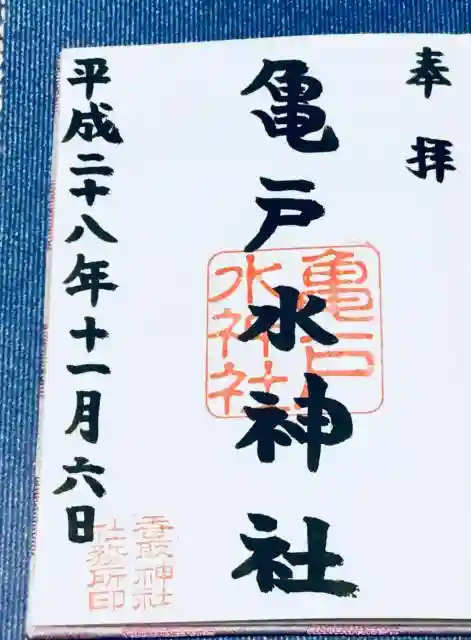 奉拝
亀戸水神社
亀戸
水神社
平成二十八年十一月六日
香取神社
社務所印